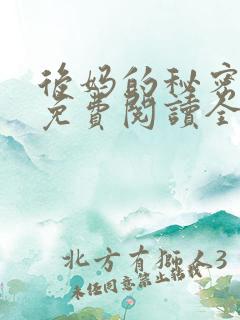 後妈的秘密
免費閱讀全
北方有獅人3
未经同意禁止转载